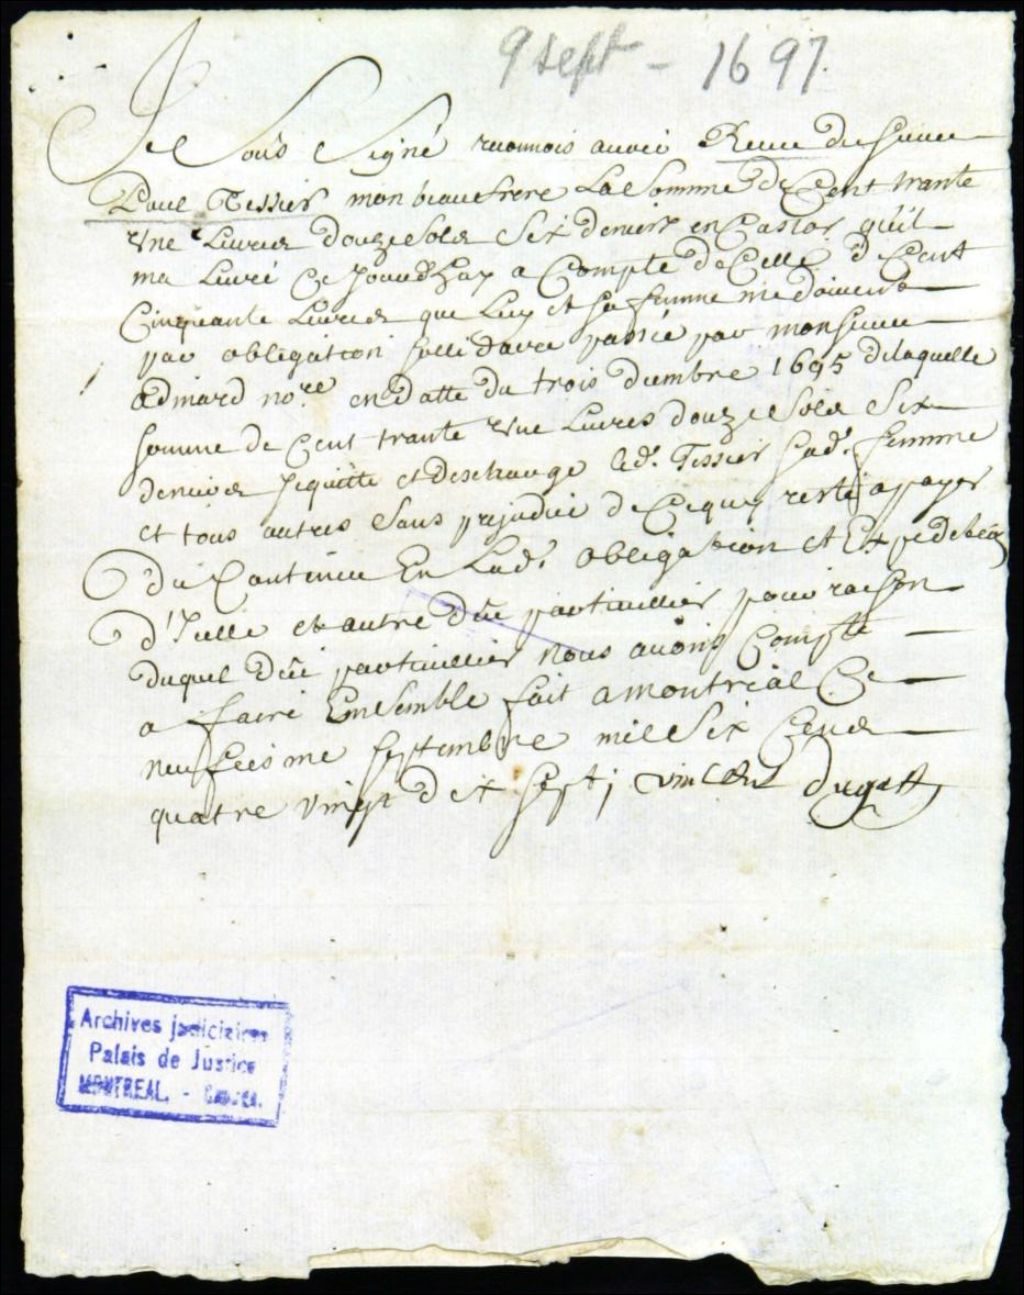 9 sept - 1697.
Je Soûs Signé reconnois auoir Receu du sieur
Paul Tessier mon beaufrere La Somme de Cent trante
Vne Liures douze Sols Six deniers en Castor qu'il
ma Liuré Ce Jourdhuy a Compte de Celle de Cent
Cinquante Liures que Luy et sa femme me doiuent
par obligation sollidaire passée par monsieur
Adhemard no.re en datte du trois dcembre 1695 de laquelle
somme de Cent trante Vne Liures douze Sols Six
deniers Jequitte et descharge led. Tessier sad. femme
et tous autres Sans prejudice de Cequy reste a payer
du Contenu En Lad. obligation et
d'Icelle et autre dû particullier pour raison
duquel dû particullier nous auons Compte
a faire Ensemble fait a montréal Ce
neufiesme septembre mil Six Cens
quatre vingt dix sept Vincent dugast
Archives judiciaires
Palais de Justice
MONTREAL. - Canada.